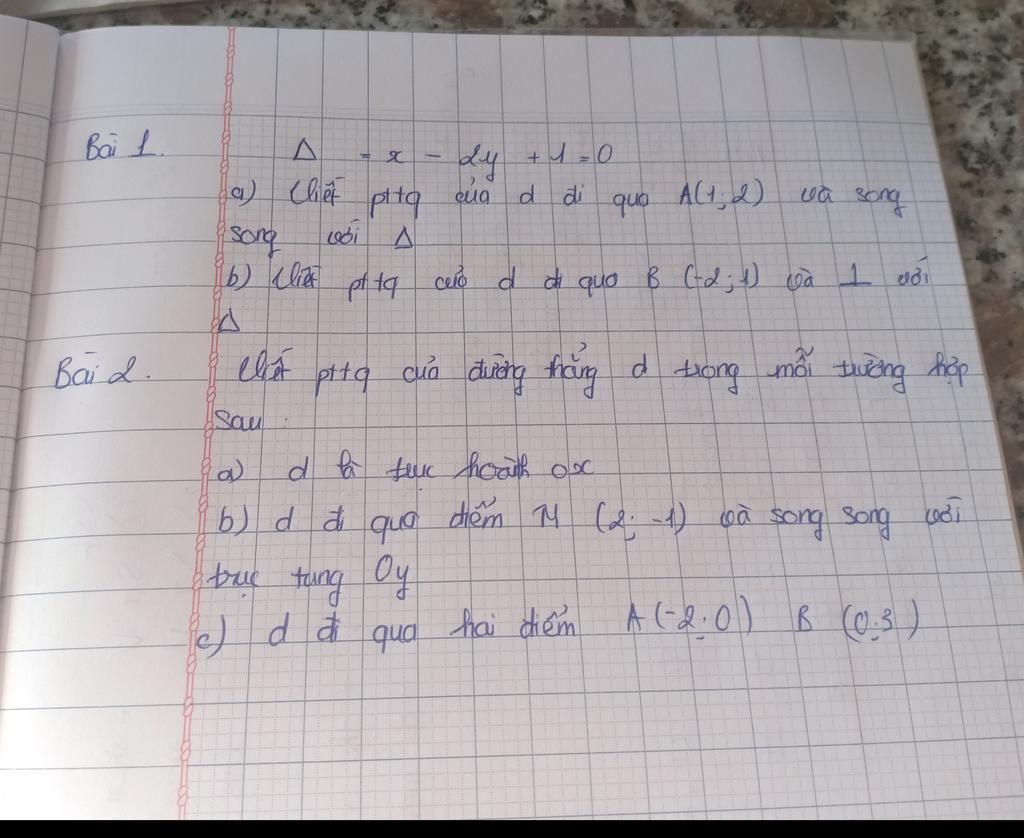 Bài 1. Δ - x - 2y + 1 = 0
a) Viết pttq của d đi qua A(1; 2) và song
song với Δ
b) Viết pttq của d đi qua B (-2; 1) và ⊥ với
Δ
Bài 2. Viết pttq của đường thẳng d trong mỗi trường hợp
sau:
a) d là trục hoành ox
b) d đi qua điểm M (2; -1) và song song với
trục tung Oy
c) d đi qua hai điểm A(-2; 0) B (0; 3)